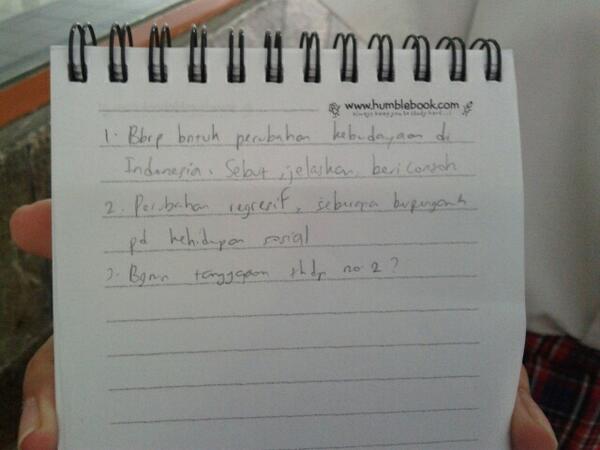 www.humblebook.com
always keep you to study hard...!
1. Bbrp bntuk perubahan kebudayaan di
Indonesia. Sebut, jelaskan, beri contoh
2. Perubahan regresif, seberapa berpengaruh
pd kehidupan sosial
3. Bgmn tanggapan thdp no. 2?